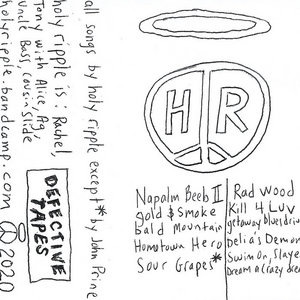 all songs by holy ripple except * by John Prine
holy ripple is: Rachel,
Tony with Alice, Ag,
Uncle Bass, cousin slide
holyripple.bandcamp.com 2020
DEFECTIVE
TAPES
H R
Napalm Beeb II
gold $ smoke
bald Mountain
Hometown Hero
Sour Grapes*
Rad Wood
Kill 4 LUV
getaway
Delia's Demon
Swim on, Slaye
Dream a crazy dre